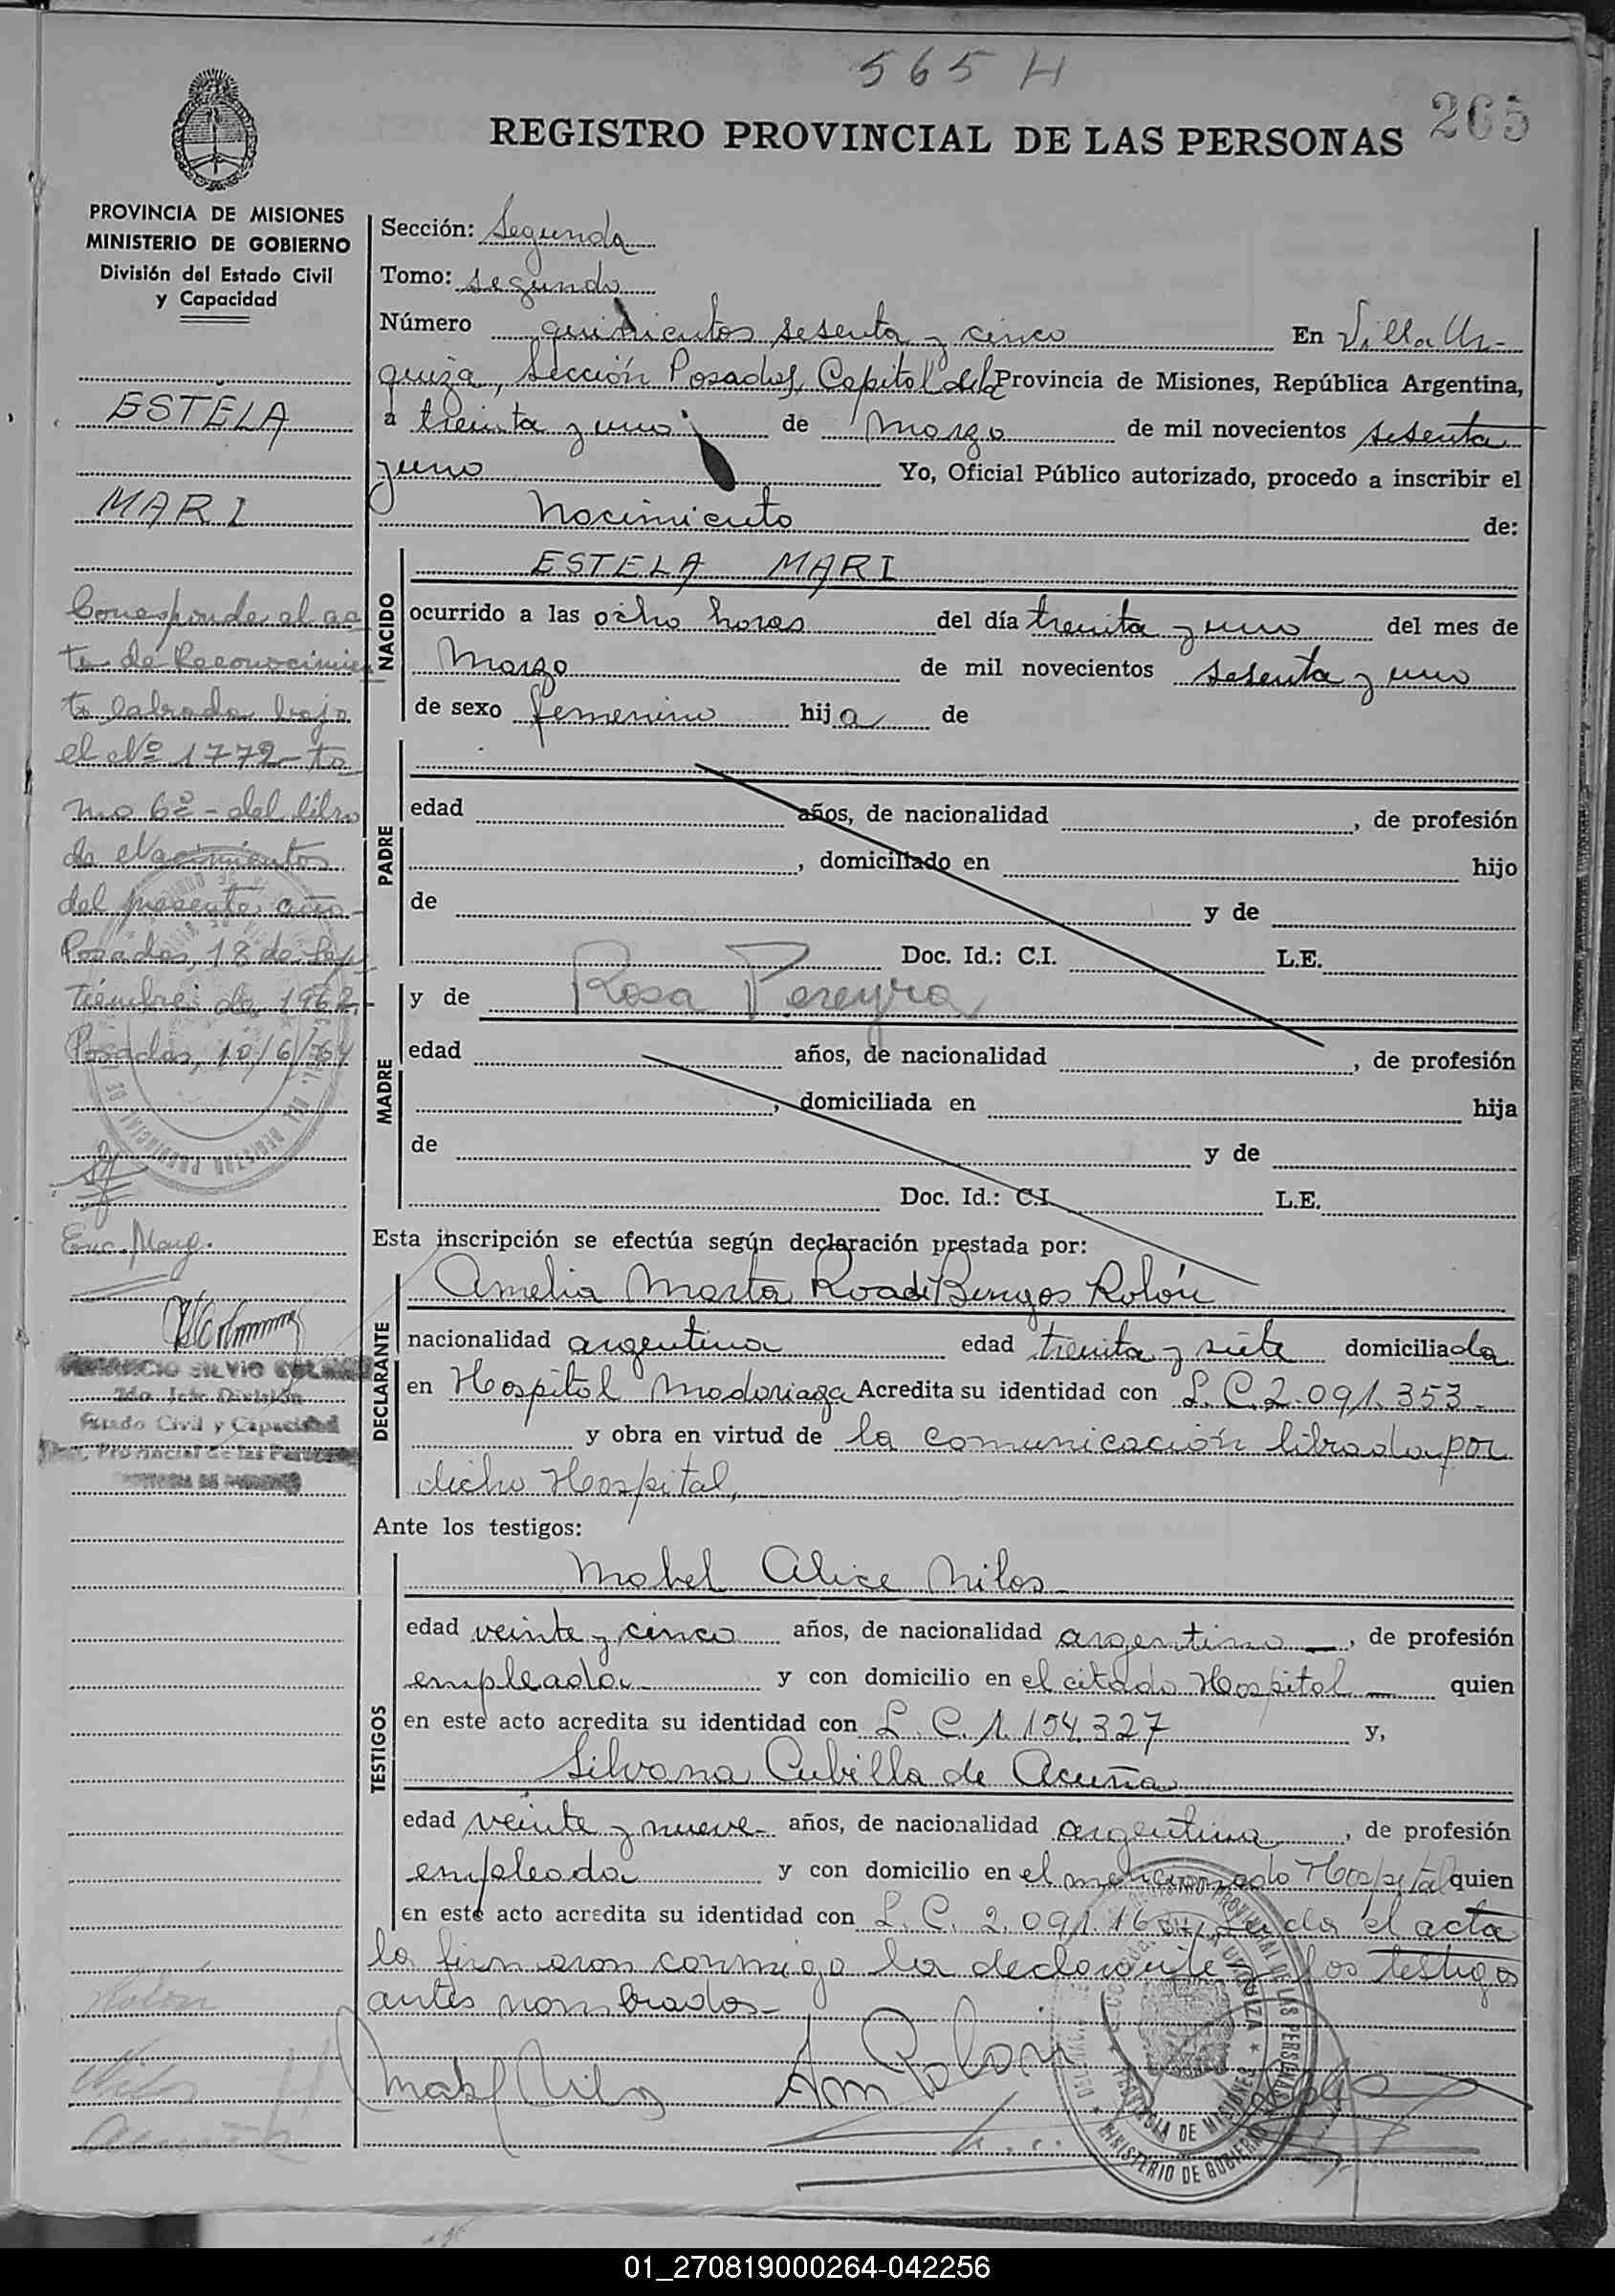 565 H
265
REGISTRO PROVINCIAL DE LAS PERSONAS
PROVINCIA DE MISIONES
MINISTERIO DE GOBIERNO
División del Estado Civil
y Capacidad
ESTELA
MARI
Corresponde al ac
ta de Reconocimien
to labrada bajo
el Nº 1772 - to
mo 6º - del libro
de Nacimientos
del presente año -
Posadas, 18 de Sep
tiembre de 1962.-
Posadas, 10/6/64
Enc. Marg.
2do. Jefe División
Estado Civil y Capacidad
Provincial de las Personas
Sección: Segunda
Tomo: segundo
Número quinientos sesenta y cinco En Villa Ur-
quiza, Sección Posadas, Capital de la Provincia de Misiones, República Argentina,
a treinta y uno de Marzo de mil novecientos sesenta
y uno Yo, Oficial Público autorizado, procedo a inscribir el
Nacimiento de:
NACIDO
ESTELA MARI
ocurrido a las ocho horas del día treinta y uno del mes de
Marzo de mil novecientos sesenta y uno
de sexo femenino hija de
PADRE
edad años, de nacionalidad , de profesión
, domiciliado en hijo
de y de
Doc. Id.: C.I. L.E.
MADRE
y de Rosa Pereyra
edad años, de nacionalidad , de profesión
, domiciliada en hija
de y de
Doc. Id.: C.I. L.E.
Esta inscripción se efectúa según declaración prestada por:
DECLARANTE
Amelia Marta Rolón
nacionalidad argentina edad treinta y siete domiciliada
en Hospital Madariaga Acredita su identidad con L. C. 2.091.353 -
y obra en virtud de la comunicación librada por
dicho Hospital,
Ante los testigos:
TESTIGOS
Mabel Alice Nilos
edad veinte y cinco años, de nacionalidad argentina —, de profesión
empleada - y con domicilio en el citado Hospital — quien
en este acto acredita su identidad con L. C. 1.154.327 y,
Silvana Cubilla de Acuña
edad veinte y nueve - años, de nacionalidad argentina , de profesión
empleada y con domicilio en el mencionado Hospital quien
en este acto acredita su identidad con L. C. 2.091.16 Leída el acta
la firmaron conmigo la declarante y los testigos
antes nombrados -
Rolón
Nilos
Acuña
Mabel Nilos
Am Rolón
PROVINCIA DE MISIONES
MINISTERIO DE GOBIERNO
01_270819000264-042256